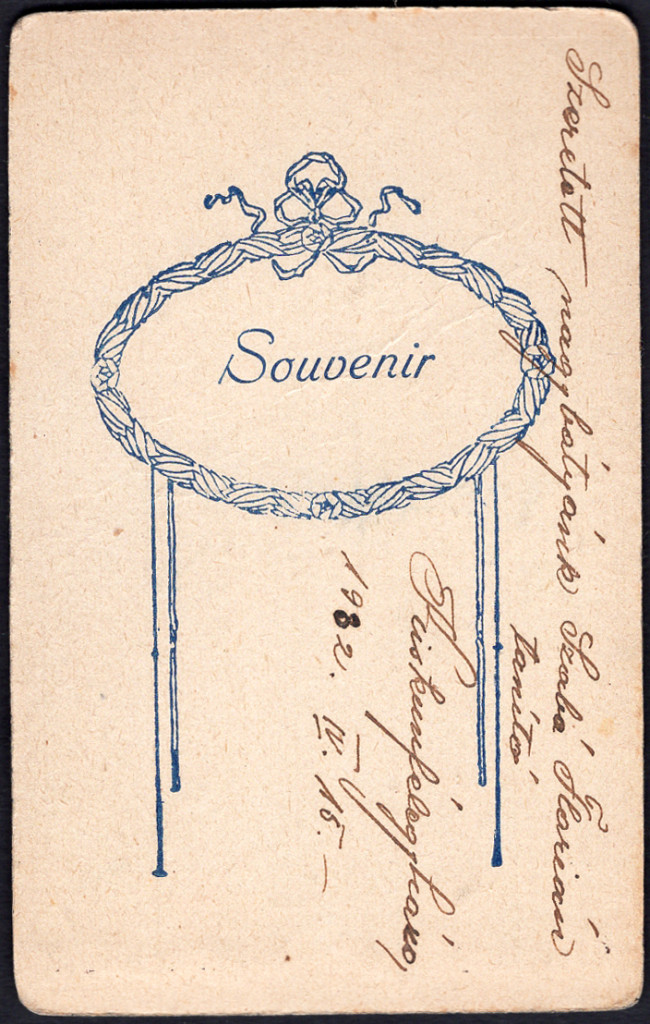 Souvenir
Szeretett nagybátyánk Szabó Flórián
tanító
Kiskunfélegyháza,
1932. IV. 15. –